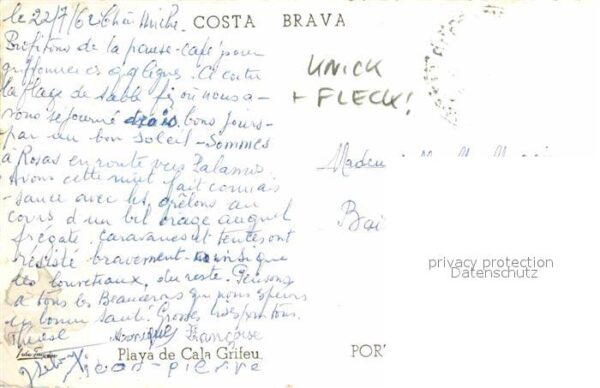 le 22/7/62 Chère
COSTA BRAVA
Profitons de la pause-café pour
griffonner ces qq lignes. Ci contre
la plage de sable fin où nous a-
vons séjourné trois bons jours-
par un bon soleil - Sommes
à Rosas en route vers Palamos.
Avons cette nuit fait connais-
sance avec les grêlons au
cours d'un bel orage auquel
frégate, caravanes et tentes ont
résisté bravement - ainsi que
les louveteaux, du reste. Pensons
à tous les Beaucerons que nous espérons
en bonne santé. Grosses bises à tous.
Thérèse Monique Françoise
Jean-pierre
KNICK
+ FLECK!
privacy protection
Datenschutz
Playa de Cala Grifeu.
POR